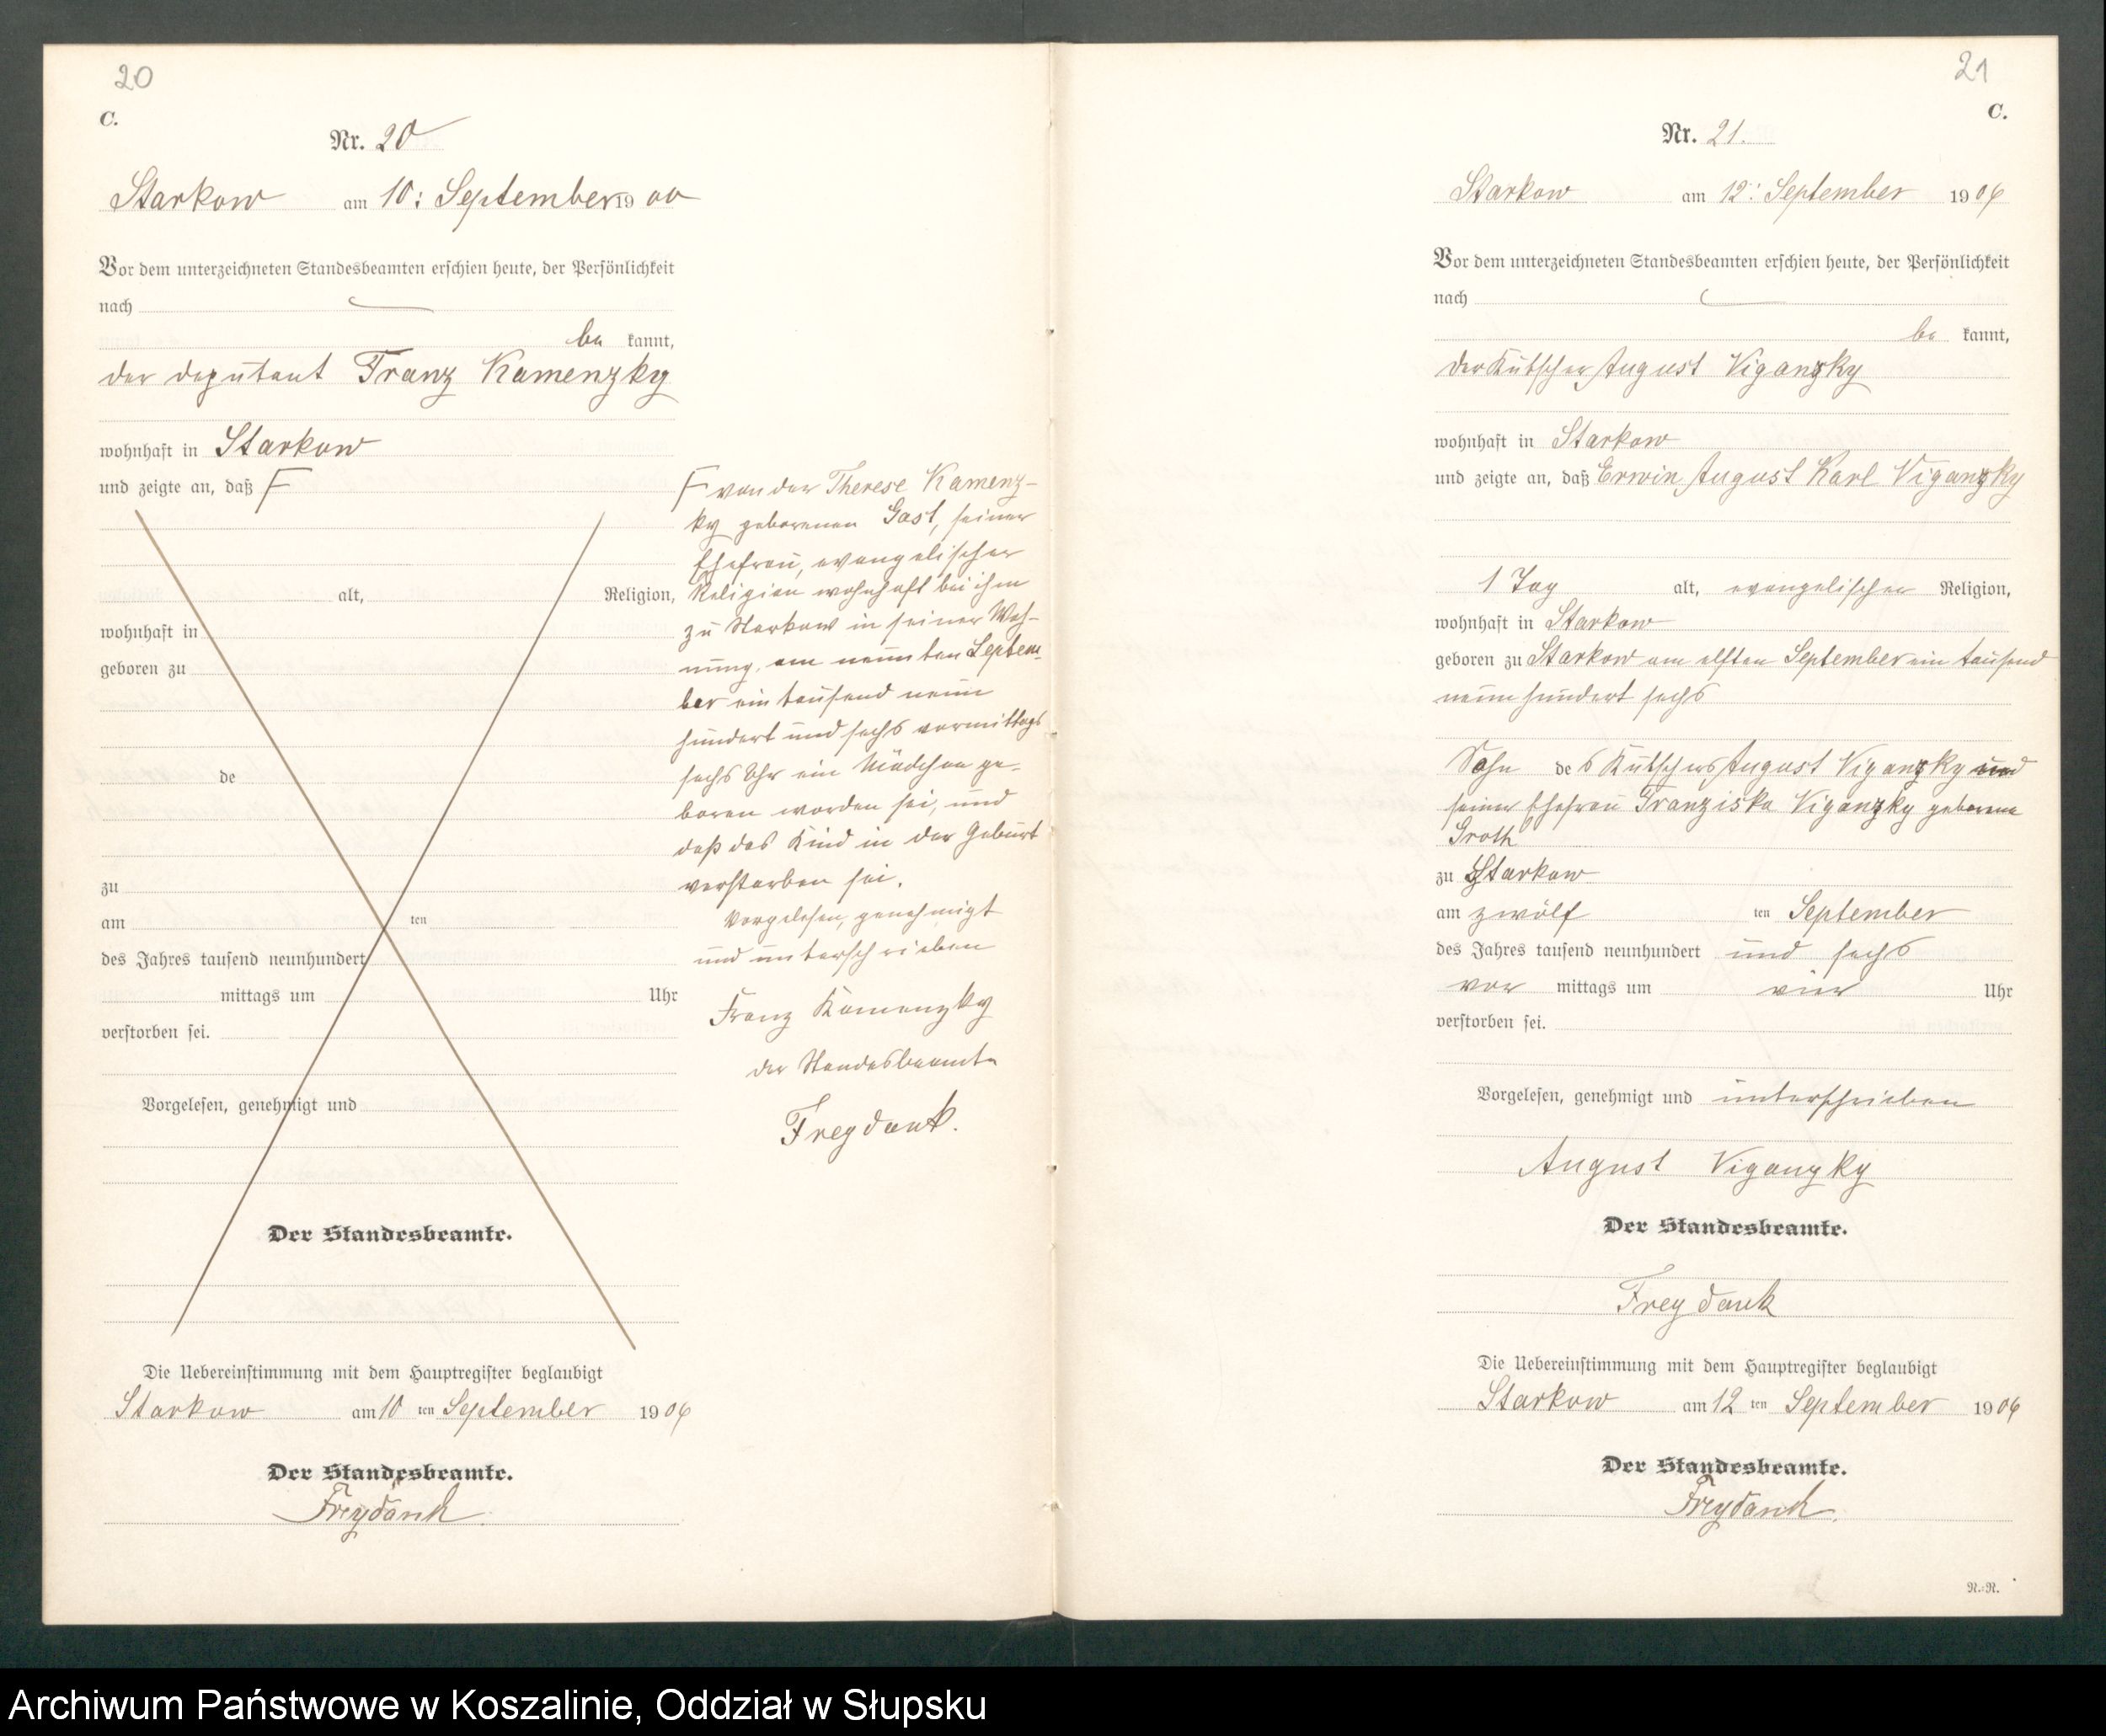 20
C.
Nr. 20
Starkow am 10: September 19 00
Vor dem unterzeichneten Standesbeamten erschien heute, der Persönlichkeit
nach
be kannt,
der Deputant Franz Kamenzky
wohnhaft in Starkow
und zeigte an, daß F
alt, Religion,
wohnhaft in
geboren zu
de
zu
am ten
des Jahres tausend neunhundert
mittags um Uhr
verstorben sei.
Vorgelesen, genehmigt und
Der Standesbeamte.
Die Uebereinstimmung mit dem Hauptregister beglaubigt
Starkow am 10 ten September 1906
Der Standesbeamte.
Freydank.
F von der Therese Kamenz-
ky geborenen Gast, seiner
Ehefrau, evangelischer
Religion wohnhaft bei ihm
zu Starkow in seiner Woh-
nung, am neunten Septem-
ber ein tausend neun
hundert und sechs vormittags
sechs Uhr ein Mädchen ge-
boren worden sei, und
daß das Kind in der Geburt
verstorben sei.
Vorgelesen, genehmigt
und unterschrieben
Franz Kamenzky
der Standesbeamte
Freydank.
21
C.
Nr. 21.
Starkow am 12: September 1906
Vor dem unterzeichneten Standesbeamten erschien heute, der Persönlichkeit
nach
be kannt,
der Kutscher August Viganzky
wohnhaft in Starkow
und zeigte an, daß Erwin August Karl Viganzky
1 Tag alt, evangelischer Religion,
wohnhaft in Starkow
geboren zu Starkow am elften September ein tausend
neun hundert sechs
Sohn de s Kutschers August Viganzky und
seiner Ehefrau Franziska Viganzky geborene
Groth
zu Starkow
am zwölf ten September
des Jahres tausend neunhundert und sechs
vor mittags um vier Uhr
verstorben sei.
Vorgelesen, genehmigt und unterschrieben
August Viganzky
Der Standesbeamte.
Freydank
Die Uebereinstimmung mit dem Hauptregister beglaubigt
Starkow am 12 ten September 1906
Der Standesbeamte.
Freydank.
N.-N.
Archiwum Państwowe w Koszalinie, Oddział w Słupsku